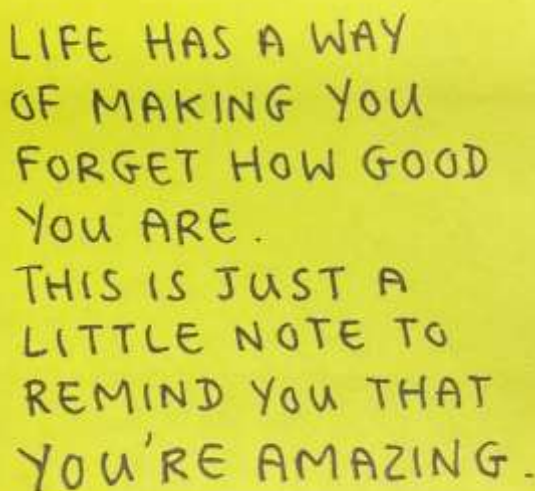 LIFE HAS A WAY
OF MAKING YOU
FORGET HOW GOOD
YOU ARE.
THIS IS JUST A
LITTLE NOTE TO
REMIND YOU THAT
YOU'RE AMAZING.